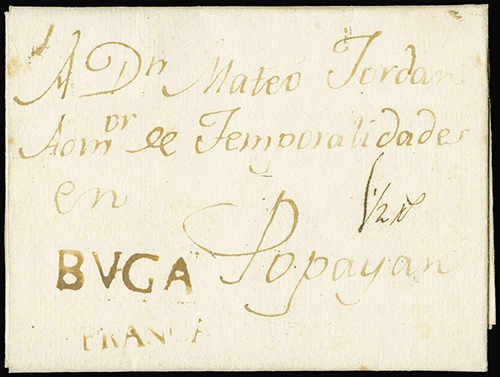 A Dn Mateo Jordan
Admor de Temporalidades
en
1/2 rl
Popayan
BVGA
FRANCA